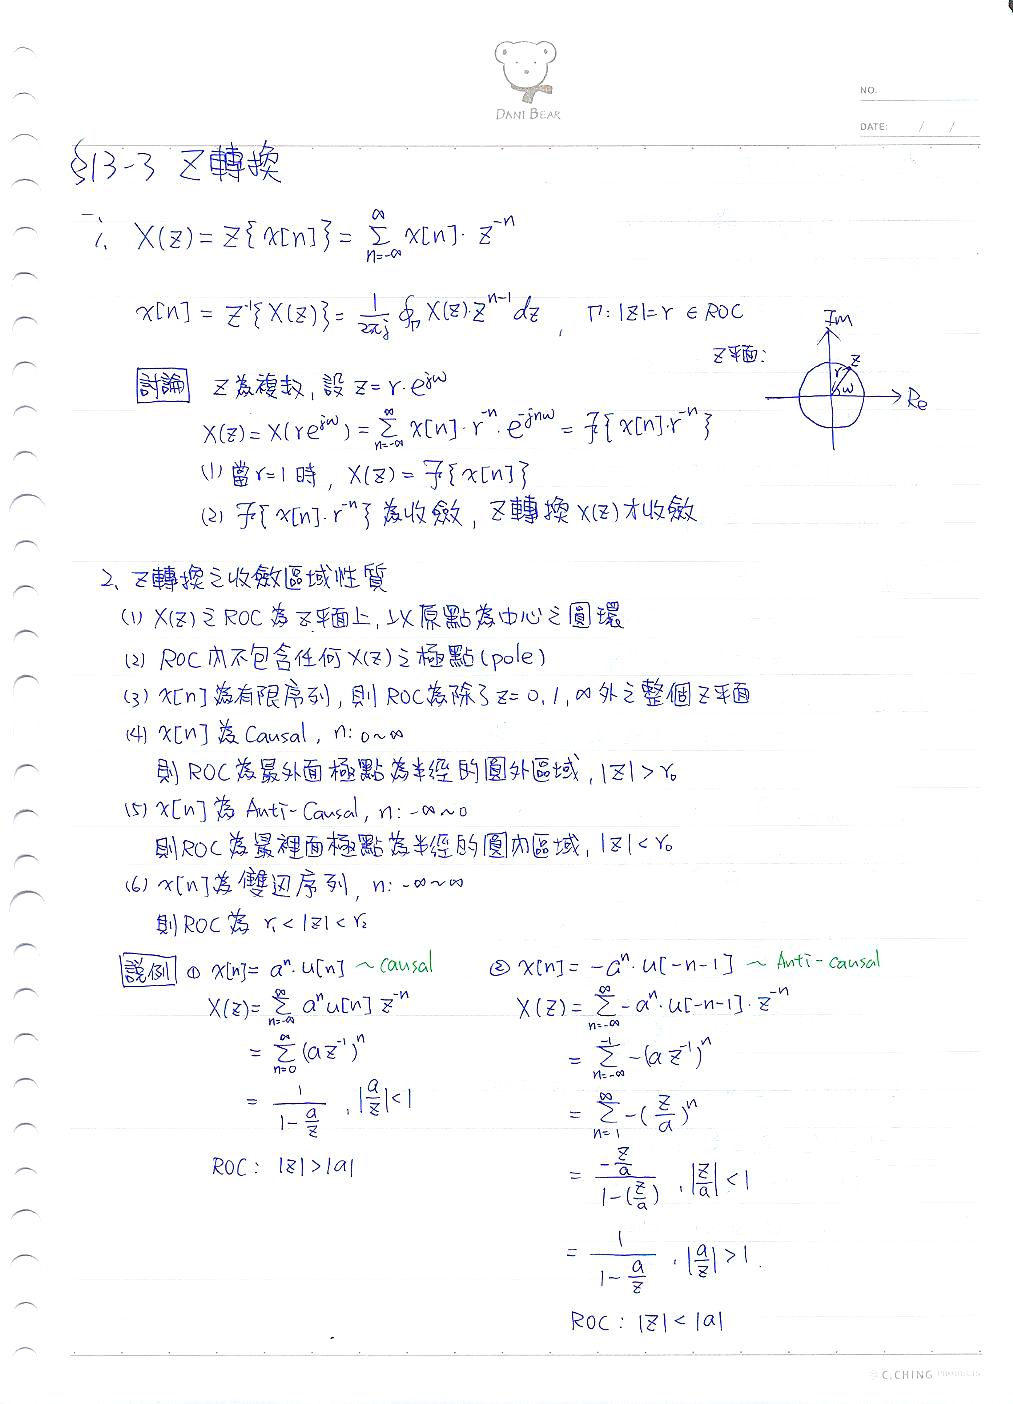 DANI BEAR
NO.
DATE: / /
§13-3 Z轉換
1、X(z) = Z{x[n]} = ∑_{n=-∞}^{∞} x[n]·z^{-n}
x[n] = Z^{-1}{X(z)} = \frac{1}{2πj} ∮_Γ X(z)·z^{n-1} dz , Γ: |z|=r ∈ ROC
Z平面:
Im
z
r
ω
Re
討論 Z為複數, 設 z = r·e^{jω}
X(z) = X(re^{jω}) = ∑_{n=-∞}^{∞} x[n]·r^{-n}·e^{-jnω} = ℱ{x[n]·r^{-n}}
(1) 當r=1時, X(z) = ℱ{x[n]}
(2) ℱ{x[n]·r^{-n}}為收斂, Z轉換X(z)才收斂
2、Z轉換之收斂區域性質
(1) X(z)之ROC為Z平面上, 以原點為中心之圓環
(2) ROC內不包含任何X(z)之極點(pole)
(3) x[n]為有限序列, 則ROC為除了z=0,1,∞外之整個Z平面
(4) x[n]為Causal, n: 0~∞
則ROC為最外面極點為半徑的圓外區域, |z|>r₀
(5) x[n]為Anti-Causal, n: -∞~0
則ROC為最裡面極點為半徑的圓內區域, |z|<r₀
(6) x[n]為雙边序列, n: -∞~∞
則ROC為 r₁<|z|<r₂
說例 ① x[n] = a^n·u[n] ~causal
X(z) = ∑_{n=-∞}^{∞} a^n u[n] z^{-n}
= ∑_{n=0}^{∞} (az^{-1})^n
= \frac{1}{1-\frac{a}{z}} , |\frac{a}{z}|<1
ROC: |z|>|a|
② x[n] = -a^n·u[-n-1] ~Anti-causal
X(z) = ∑_{n=-∞}^{∞} -a^n·u[-n-1]·z^{-n}
= ∑_{n=-∞}^{-1} -(az^{-1})^n
= ∑_{n=1}^{∞} -(\frac{z}{a})^n
= \frac{-\frac{z}{a}}{1-(\frac{z}{a})} , |\frac{z}{a}|<1
= \frac{1}{1-\frac{a}{z}} , |\frac{a}{z}|>1.
ROC: |z|<|a|
C.CHING PRODUCTS